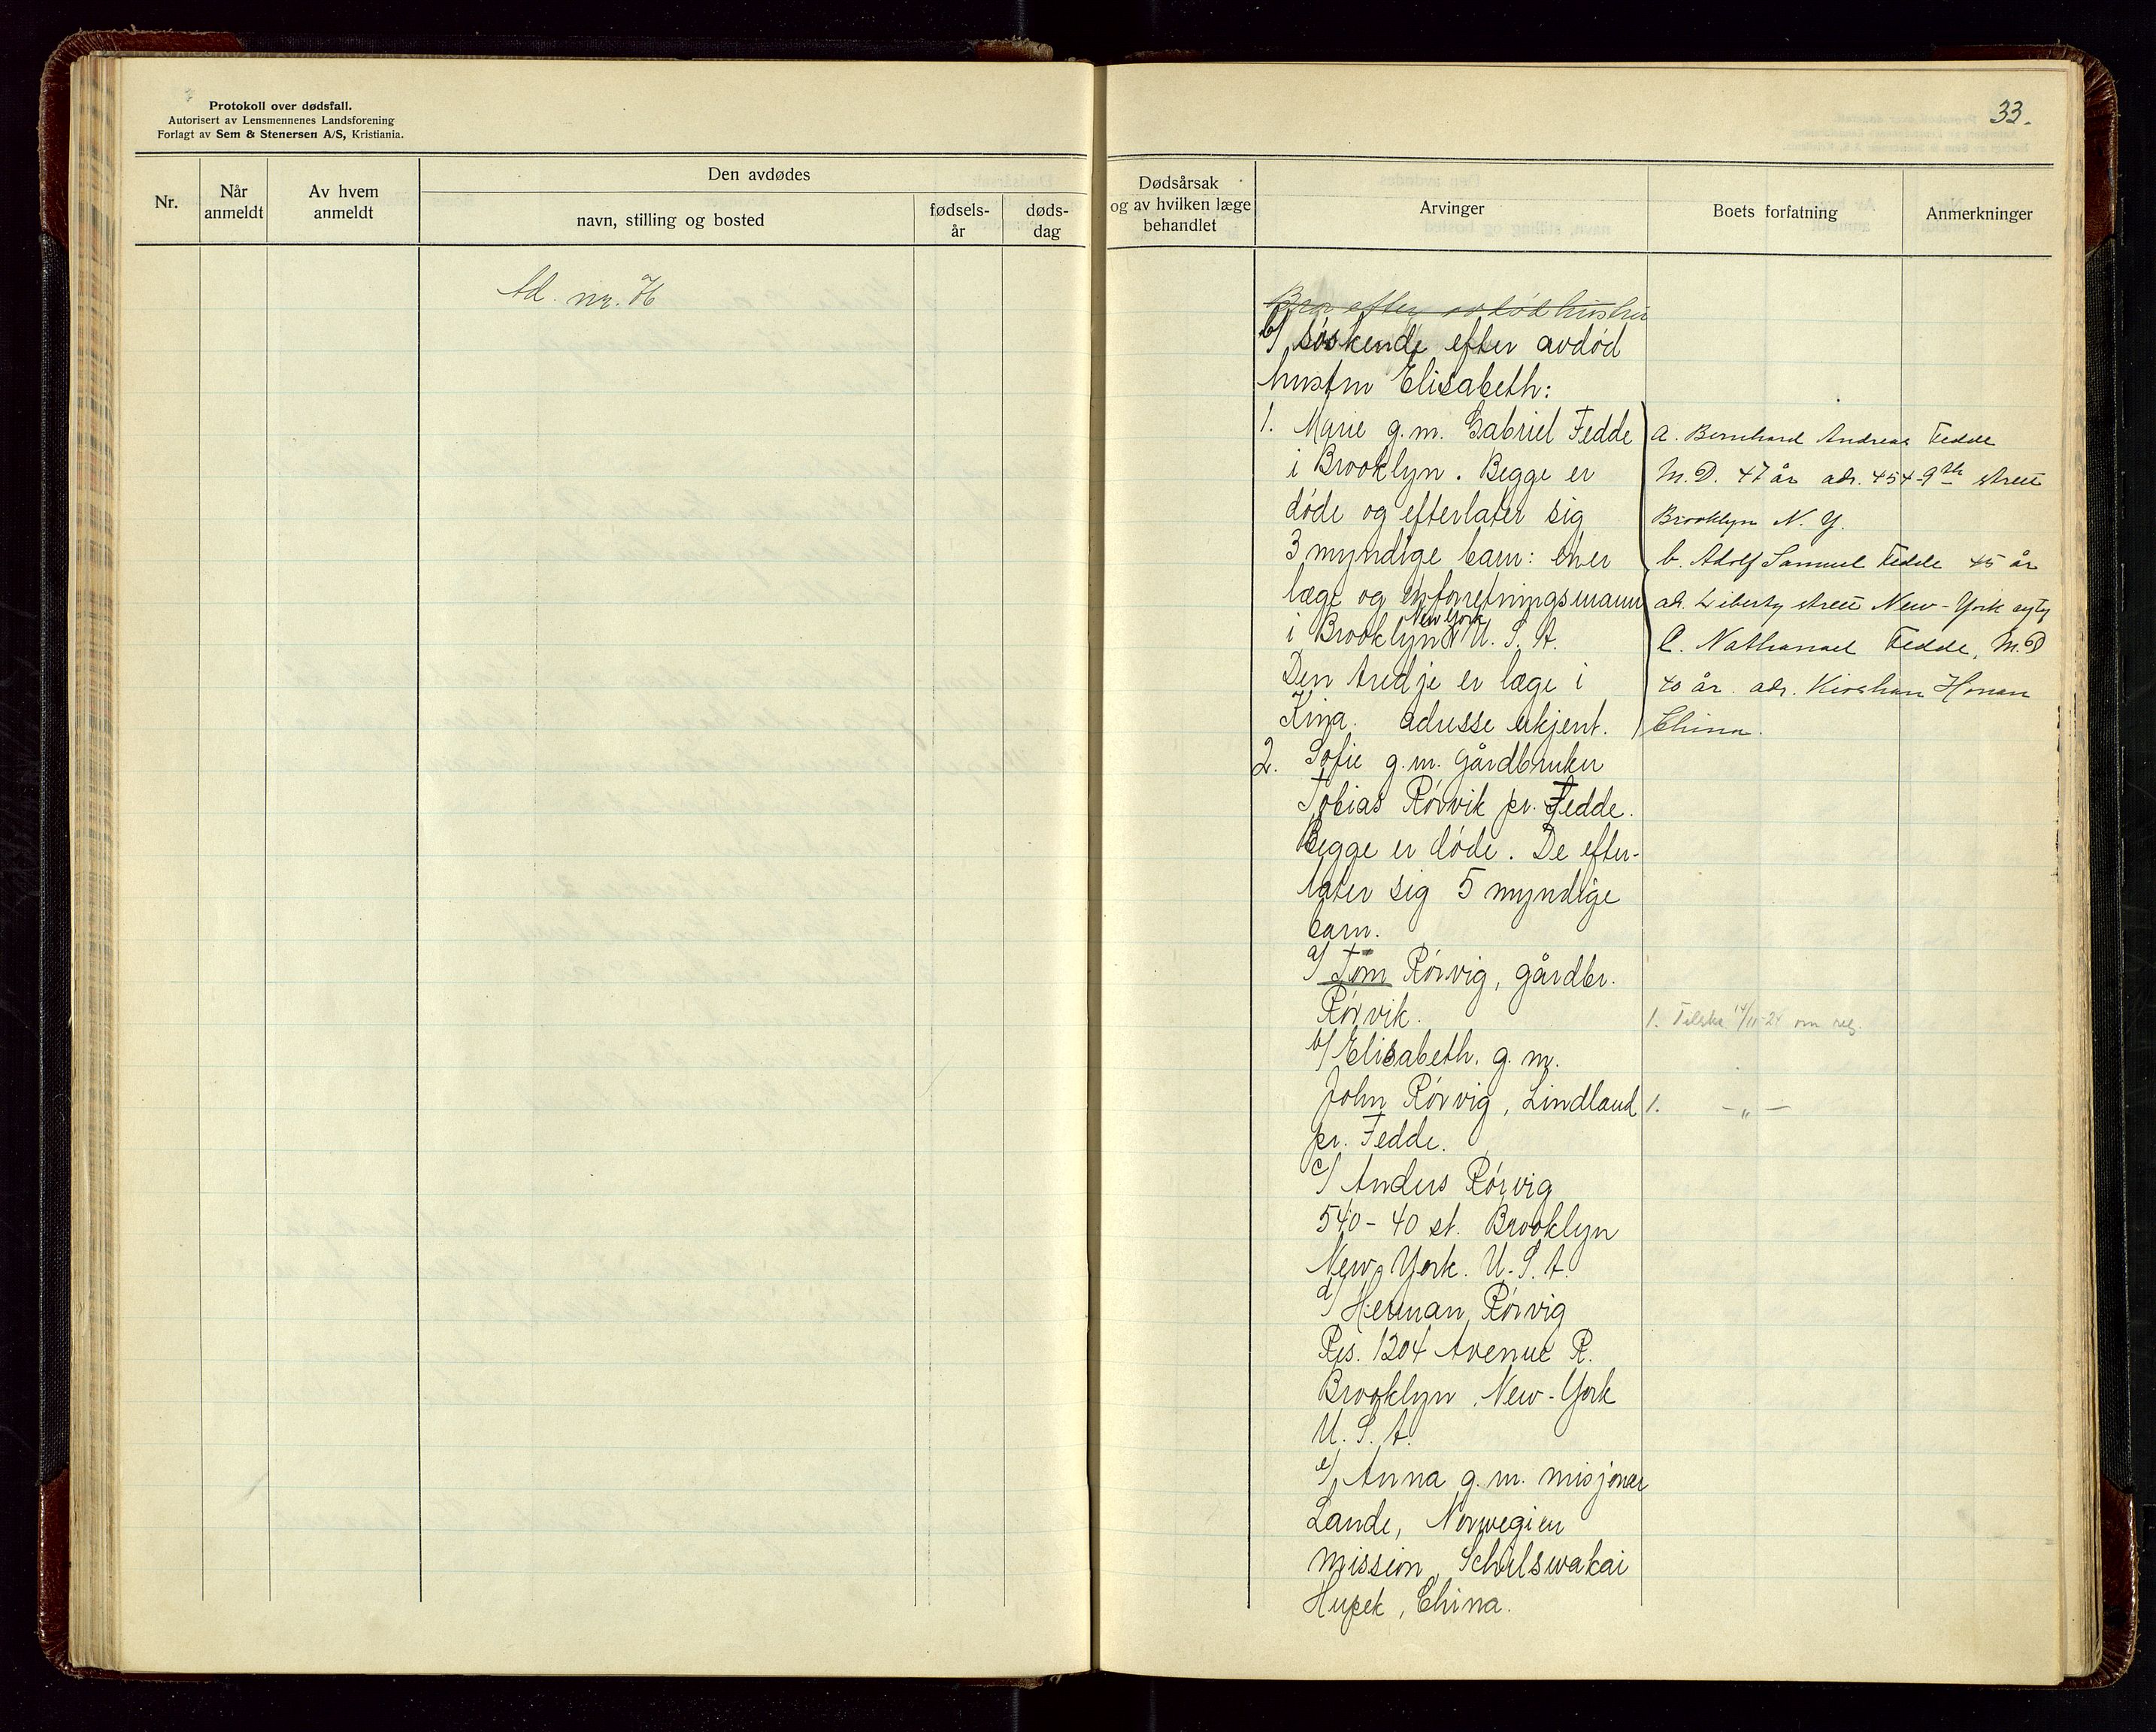 Protokoll over dødsfall.
Autorisert av Lensmennenes Landsforening
Forlagt av Sem & Stenersen A/S, Kristiania.
33.
Nr.
Når anmeldt
Av hvem anmeldt
Den avdødes
navn, stilling og bosted
fødsels-
år
døds-
dag
Dødsårsak
og av hvilken læge
behandlet
Arvinger
Boets forfatning
Anmerkninger
Ad. nr.
Bror efter avdød hustru
b/ søskende efter avdød
hustru Elisabeth:
1. Marie g.m. Gabriel Fedde
i Brooklyn. Begge er
døde og efterlater sig
3 myndige barn: en er
læge og en forretningsmann
i Brooklyn New York U.S.A.
Den tredje er læge i
Kina. adresse ukjent.
a. Bernhard Andreas Fedde
M.D. 47 år adr. 454-9th street
Brooklyn N.Y.
b. Adolf Samuel Fedde 45 år
ad. Liberty street New-York cyty
C. Nathanael Fedde, M.D
40 år. adr. Honan
China.
2. Sofie g.m. gårdbruker
Tobias Rørvik pr. Fedde.
Begge er døde. De efter-
later sig 5 myndige
barn.
a/ Tom Rørvig, gårdbr.
Rørvik.
1. 14/11-24 om
b/ Elisabeth. g.m.
John Rørvig, Lindland
1. -„-
pr. Fedde.
c/ Anders Rørvig
540-40 st. Brooklyn
New York. U.S.A.
d/ Herman Rørvig
Res. 1204 Avenue R.
Brooklyn, New-York
U.S.A.
e/ Anna g.m. misjonær
Lande, Norwegien
mission, Schilswakai
Hupek, China.